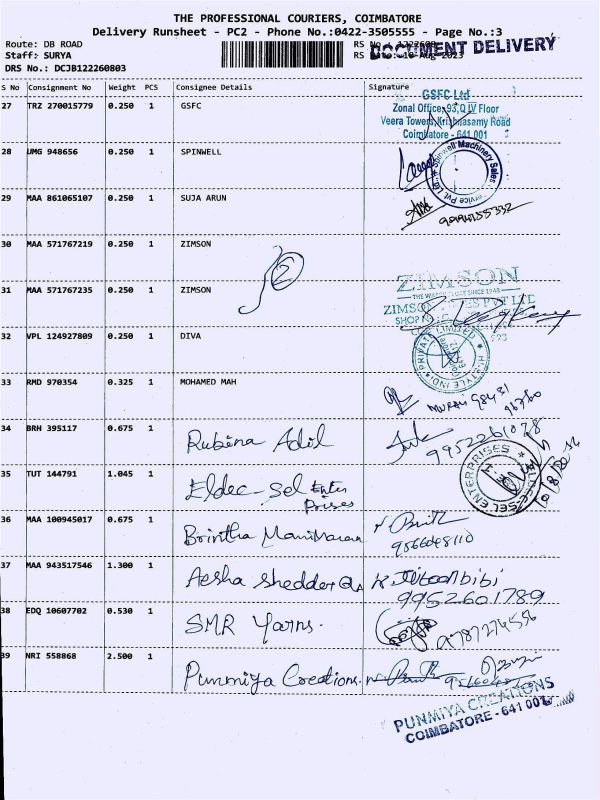 THE PROFESSIONAL COURIERS, COIMBATORE
Delivery Runsheet - PC2 - Phone No.:0422-3505555 - Page No.:3
Route: DB ROAD
Staff: SURYA
DRS No.: DCJB122260803
DOCUMENT DELIVERY
S No Consignment No Weight PCS Consignee Details Signature
27 TRZ 270015779 0.250 1 GSFC
GSFC Ltd
Zonal Office,93,Q IV Floor
Veera Towers,Krishnasamy Road
Coimbatore - 641 001
28 UMG 948656 0.250 1 SPINWELL
Spinwell Machinery Sales
Service Pvt. Ltd.
29 MAA 861065107 0.250 1 SUJA ARUN
30 MAA 571767219 0.250 1 ZIMSON
2
31 MAA 571767235 0.250 1 ZIMSON
ZIMSON
SINCE 1948
PVT LTD
SHOP
32 VPL 124927809 0.250 1 DIVA
PRIVATE LIMITED
33 RMD 970354 0.325 1 MOHAMED MAH
34 BRH 395117 0.675 1 Rubina Adil
9952261078
35 TUT 144791 1.045 1 Eldec-Sel Enter
Prises
ELDEC-SEL ENTERPRISES
36 MAA 100945017 0.675 1 Brintha Manimaran
9566048110
37 MAA 943517546 1.300 1 Aesha Shedder
9952601789
38 EDQ 10607702 0.530 1 SMR Yarns.
9787274556
39 NRI 558868 2.500 1 Punmiya Creations.
PUNMIYA CREATIONS
COIMBATORE - 641 001